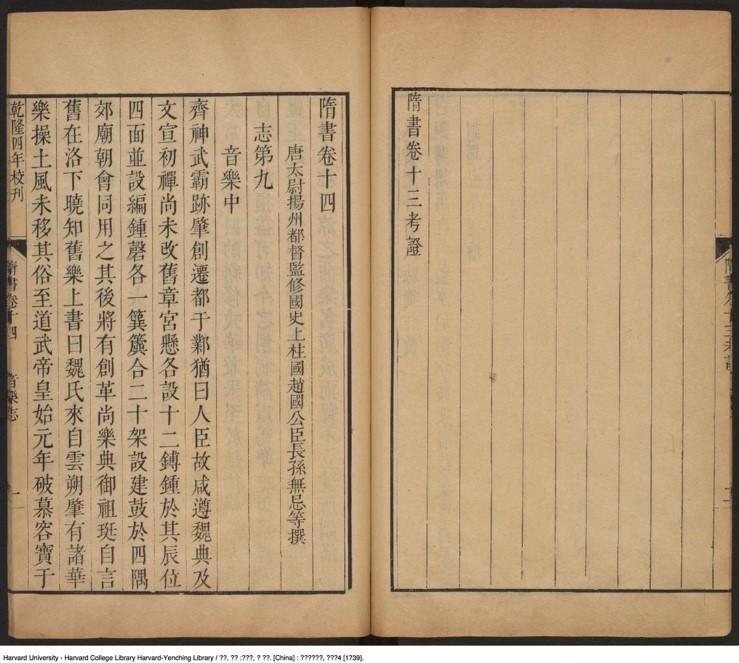 隋書卷十三考證
隋書卷十四
唐太尉揚州都督監修國史上柱國趙國公臣長孫無忌等撰
志第九
音樂中
齊神武霸跡肇創遷都于鄴猶曰人臣故咸遵魏典及
文宣初禪尚未改舊章宮懸各設十二鎛鍾於其辰位
四面並設編鍾磬各一簨簴合二十架設建鼓於四隅
郊廟朝會同用之其後將有創革尚樂典御祖珽自言
舊在洛下曉知舊樂上書曰魏氏來自雲朔肇有諸華
樂操土風未移其俗至道武帝皇始元年破慕容寶于
乾隆四年校刊
隋書卷十四 音樂志 一
Harvard University - Harvard College Library Harvard-Yenching Library / ??. ?? :???, ? ??. [China] : ??????, ???4 [1739].